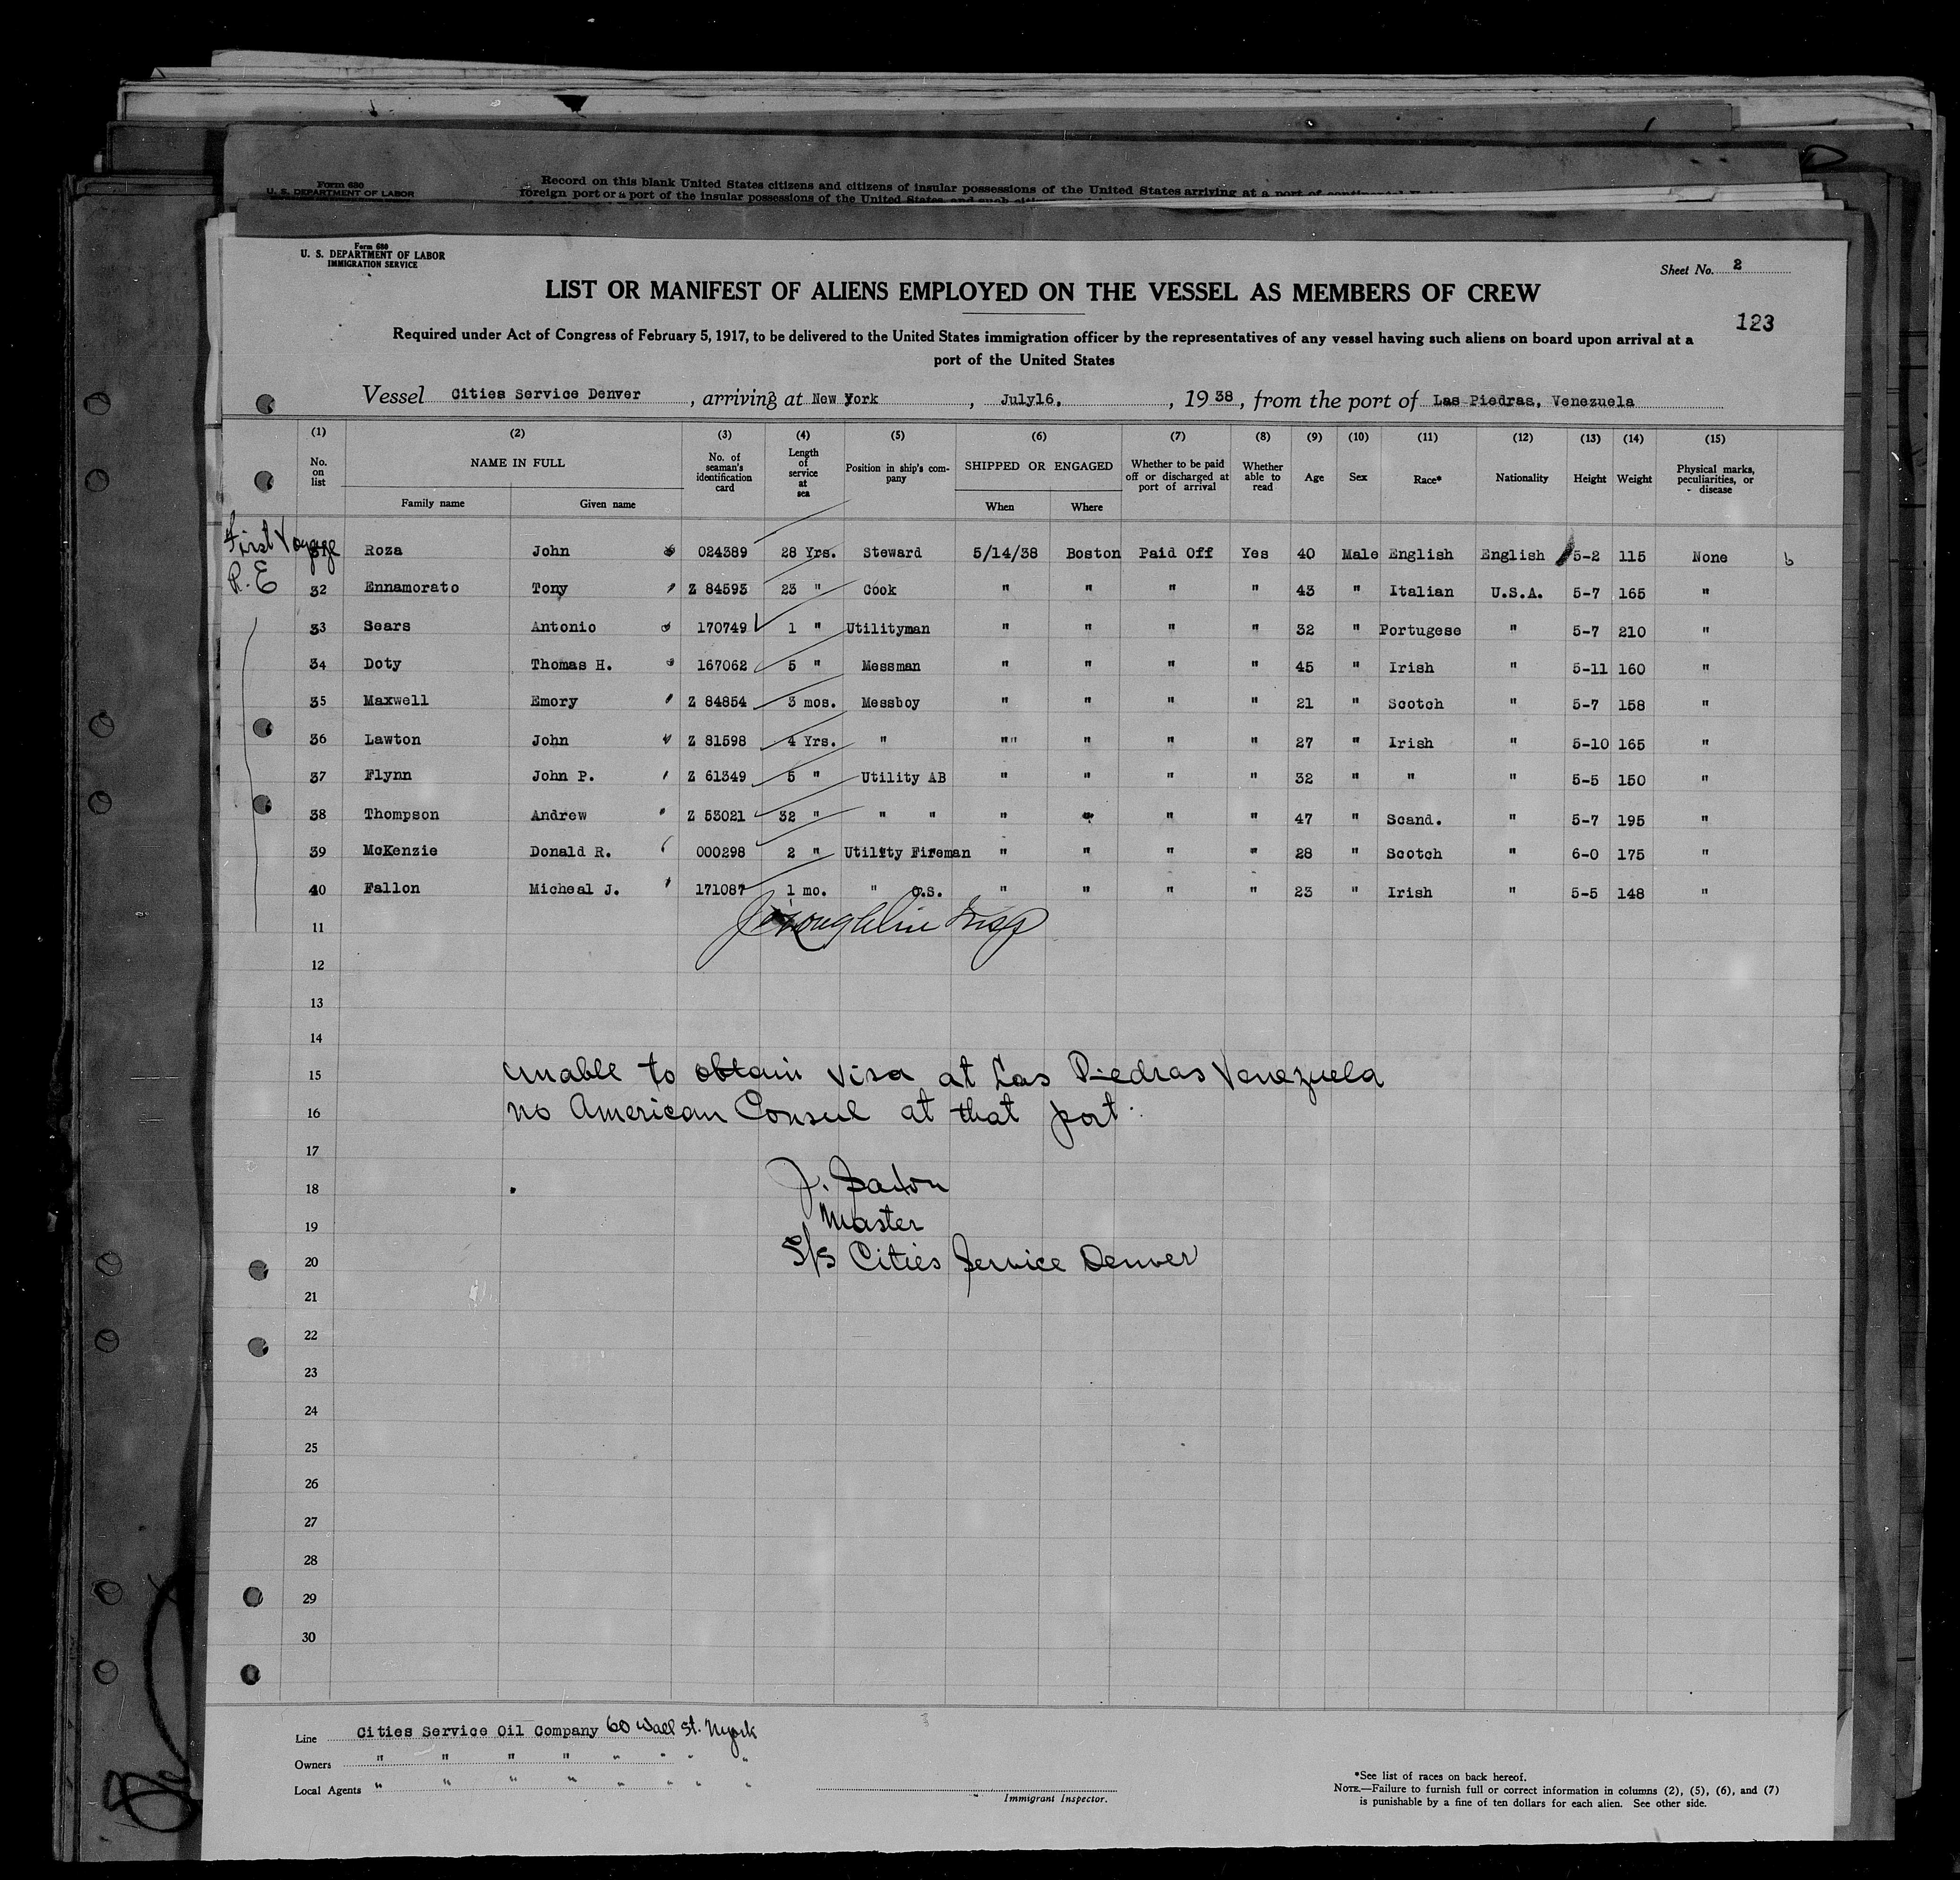 Form 630
U. S. DEPARTMENT OF LABOR
Record on this blank United States citizens and citizens of insular possessions of the United States arriving at a port of
foreign port or a port of the insular possessions of the United States and such
Form 680
U. S. DEPARTMENT OF LABOR
IMMIGRATION SERVICE
Sheet No. 2
LIST OR MANIFEST OF ALIENS EMPLOYED ON THE VESSEL AS MEMBERS OF CREW
123
Required under Act of Congress of February 5, 1917, to be delivered to the United States immigration officer by the representatives of any vessel having such aliens on board upon arrival at a
port of the United States
Vessel Cities Service Denver, arriving at New York, July16, 1938, from the port of Las Piedras, Venezuela
(1) (2) (3) (4) (5) (6) (7) (8) (9) (10) (11) (12) (13) (14) (15)
No. on list NAME IN FULL No. of seaman's identification card Length of service at sea Position in ship's company SHIPPED OR ENGAGED Whether to be paid off or discharged at port of arrival Whether able to read Age Sex Race* Nationality Height Weight Physical marks, peculiarities, or disease
Family name Given name When Where
First Voyage Roza John 024389 28 Yrs. Steward 5/14/38 Boston Paid Off Yes 40 Male English English 5-2 115 None b
R. E 32 Ennamorato Tony Z 84593 23 " Cook " " " " 43 " Italian U.S.A. 5-7 165 "
33 Sears Antonio 170749 1 " Utilityman " " " " 32 " Portugese " 5-7 210 "
34 Doty Thomas H. 167062 5 " Messman " " " " 45 " Irish " 5-11 160 "
35 Maxwell Emory Z 84854 3 mos. Messboy " " " " 21 " Scotch " 5-7 158 "
36 Lawton John Z 81598 4 Yrs. " "" " " " 27 " Irish " 5-10 165 "
37 Flynn John P. Z 61349 5 " Utility AB " " " " 32 " " " 5-5 150 "
38 Thompson Andrew Z 53021 32 " " " " " " " 47 " Scand. " 5-7 195 "
39 McKenzie Donald R. 000298 2 " Utility Fireman " " " " 28 " Scotch " 6-0 175 "
40 Fallon Micheal J. 171087 1 mo. " O.S. " " " " 23 " Irish " 5-5 148 "
11
12
13
14
15 unable to obtain visa at Las Piedras Venezuela
16 no American Consul at that port.
17
18
19 Master
20 S/S Cities Service Denver
21
22
23
24
25
26
27
28
29
30
Line Cities Service Oil Company 60 Wall St. Nyork
Owners " " " " " " " "
Local Agents " " " " " " " "
Immigrant Inspector.
*See list of races on back hereof.
NOTE.—Failure to furnish full or correct information in columns (2), (5), (6), and (7)
is punishable by a fine of ten dollars for each alien. See other side.